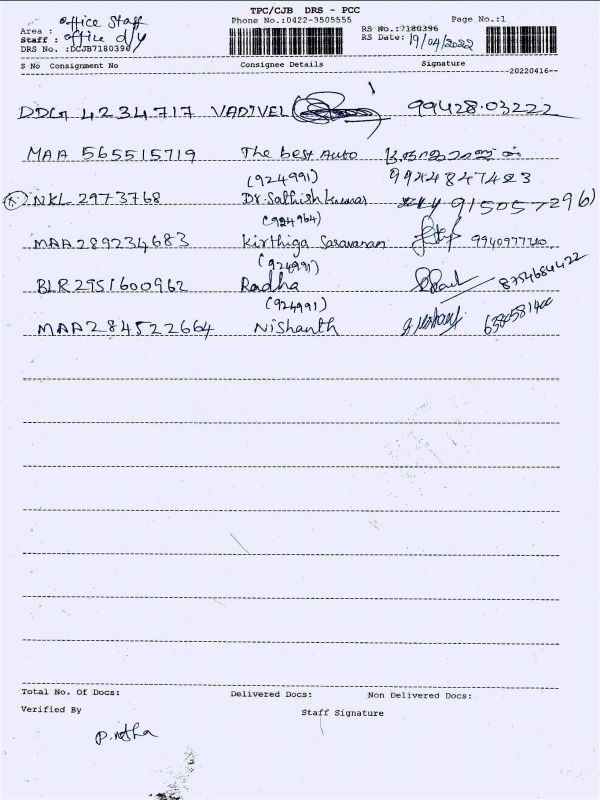 TPC/CJB DRS - PCC
Area : office Staff
Phone No.:0422-3505555
RS No.:7180396
Page No.:1
Staff : office d/y
RS Date: 19/04/2022
DRS No. :DCJB7180396
S No Consignment No Consignee Details Signature
20220416
DDG 4234717 VADIVEL 99428.03222
MAA 565515719 The best Auto
(924991)
NKL 2973768 Dr. Sathish kumar
(924964)
MAA 289234683 Kirthiga Saravanan
(924991)
BLR2951600962 Radha 8754684422
(924991)
MAA284522664 Nishanth
Total No. Of Docs: Delivered Docs: Non Delivered Docs:
Verified By Staff Signature